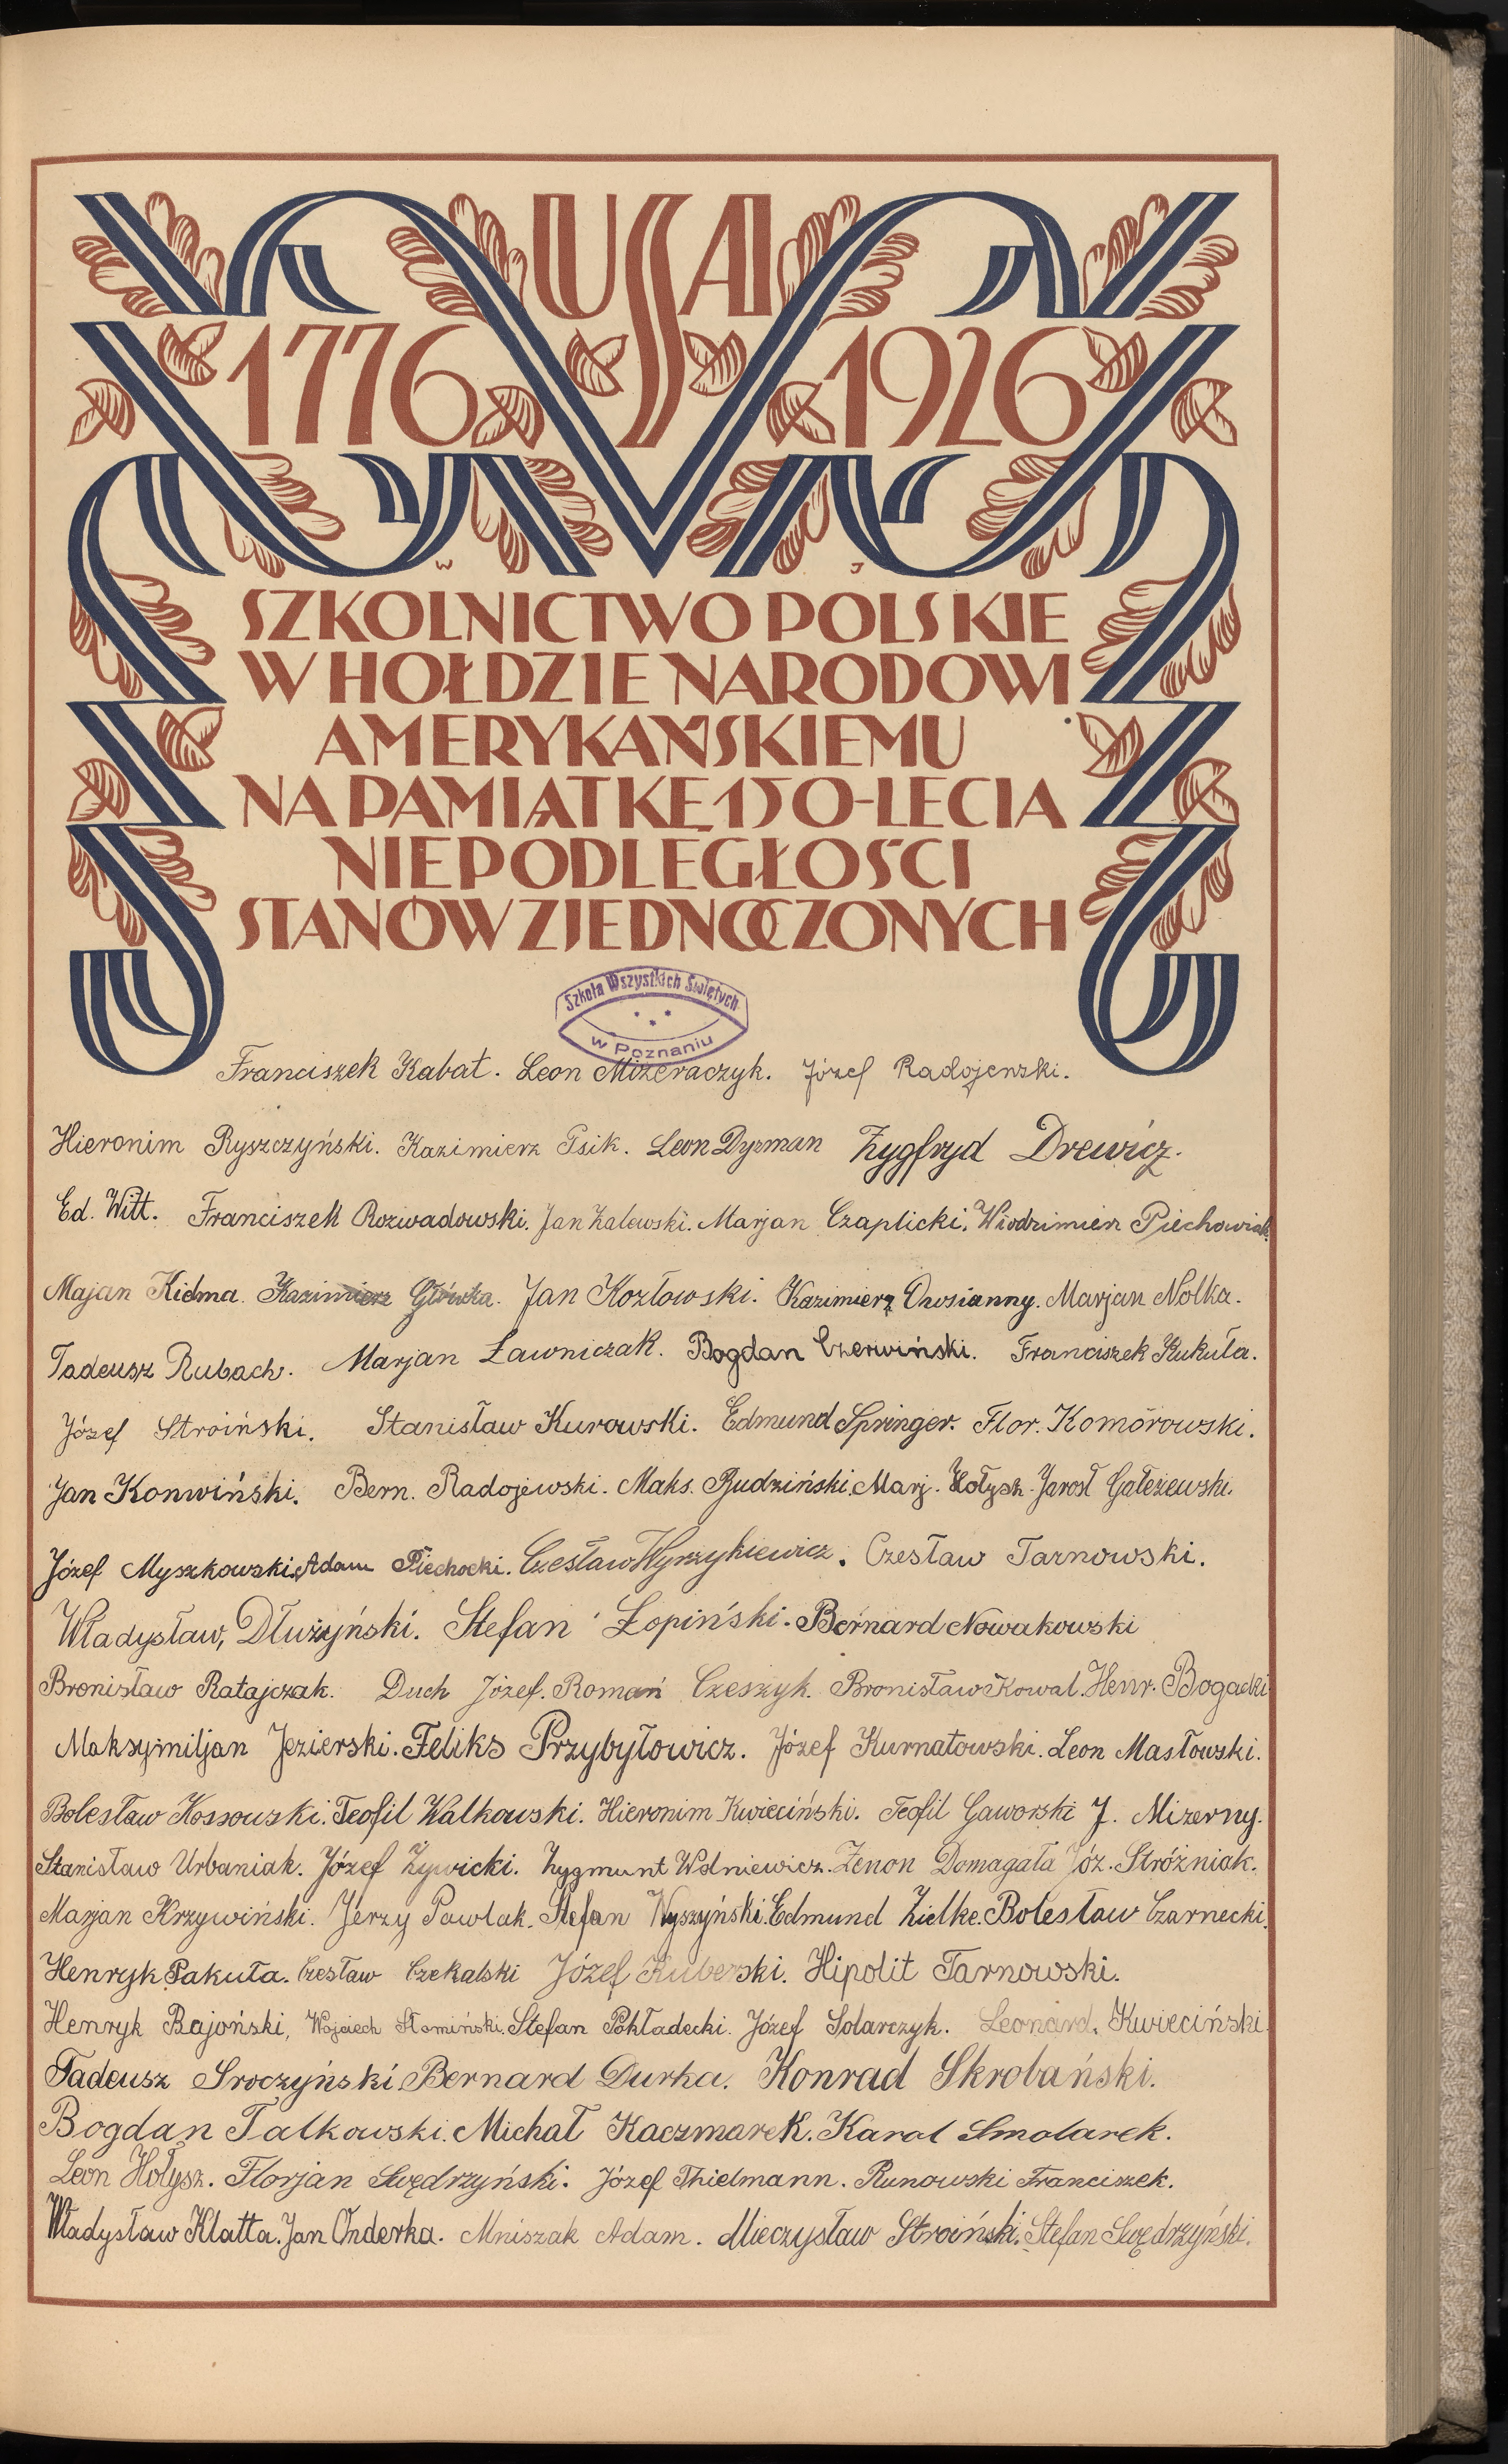 USA
1776 1926
W J
SZKOLNICTWO POLSKIE
W HOŁDZIE NARODOWI
AMERYKAŃSKIEMU
NA PAMIĄTKĘ 150-LECIA
NIEPODLEGŁOŚCI
STANÓW ZJEDNOCZONYCH
Szkoła Wszystkich Świętych
w Poznaniu
Franciszek Kabat. Leon Mizeraczyk. Józef Radojewski.
Hieronim Ryszczyński. Kazimierz Psik. Leon Dyzman Zygfryd Drewicz.
Ed. Witt. Franciszek Rozwadowski. Jan Zalewski. Marjan Czaplicki. Włodzimierz Piechowiak
Majan Kidma. Kazimierz Główka. Jan Kozłowski. Kazimierz Owsianny. Marjan Nolka.
Tadeusz Rubach. Marjan Ławniczak. Bogdan Czerwiński. Franciszek Kukuła.
Józef Stroiński. Stanisław Kurowski. Edmund Springer. Flor. Komórowski.
Jan Konwiński. Bern. Radojewski. Maks. Budziński. Marj. Hołysz. Jarosł Gałeżewski.
Józef Myszkowski. Adam Piechocki. Czesław Wyrzykiewicz. Czesław Tarnowski.
Władysław, Dłużyński. Stefan Łopiński. Bernard Nowakowski
Bronisław Ratajczak. Duch Józef. Roman Czeszyk. Bronisław Kowal. Henr. Bogacki
Maksymiljan Jezierski. Feliks Przybyłowicz. Józef Kurnatowski. Leon Masłowski.
Bolesław Kossowski. Teofil Walkowski. Hieronim Kwieciński. Teofil Gaworski J. Mizerny.
Stanisław Urbaniak. Józef Żywicki. Zygmunt Wolniewicz. Zenon Domagała Józ. Stróżniak.
Marjan Krzywiński. Jerzy Pawlak. Stefan Wyszyński. Edmund Zielke. Bolesław Czarnecki.
Henryk Pakuła. Czesław Czekalski Józef Kuberski. Hipolit Tarnowski.
Henryk Bajoński, Wojciech Słomiński. Stefan Pokładecki. Józef Solarczyk. Leonard. Kwieciński.
Tadeusz Sroczyński Bernard Durka. Konrad Skrobański.
Bogdan Talkowski. Michał Kaczmarek. Karol Smolarek.
Leon Hołysz. Florjan Swędrzyński. Józef Thielmann. Runowski Franciszek.
Władysław Klatta. Jan Onderka. Mniszak Adam. Mieczysław Stroiński. Stefan Swędrzyński.